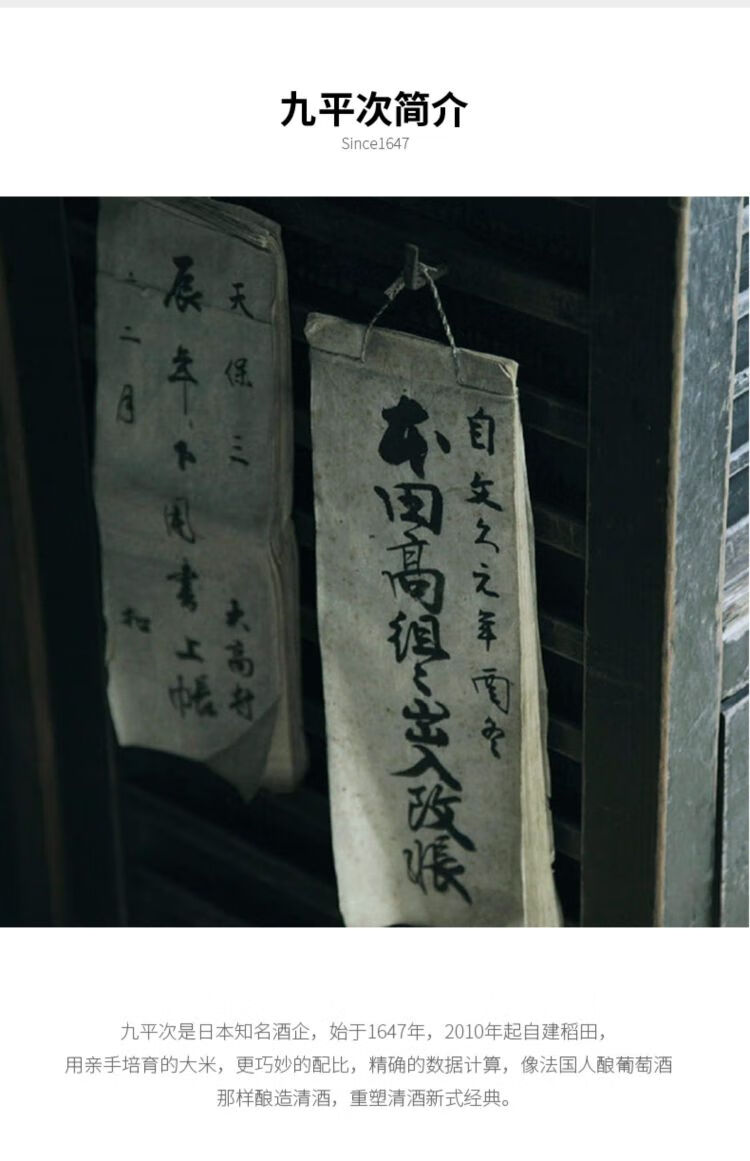 九平次简介
Since1647
天保三
大高村
辰年下用書上帳
二月
自文久元年酉冬
本田高組々出入改帳
九平次是日本知名酒企，始于1647年，2010年起自建稻田，
用亲手培育的大米，更巧妙的配比，精确的数据计算，像法国人酿葡萄酒
那样酿造清酒，重塑清酒新式经典。